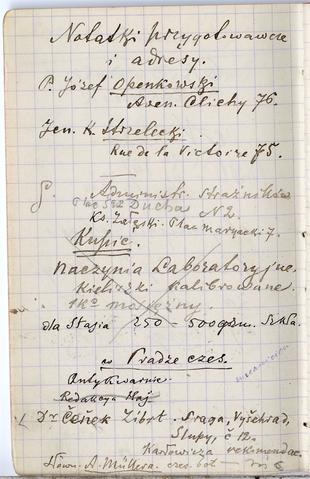 Notatki przygotowawcze
i adresy.
P. Józef Openkowski
Aven. Clichy 76.
Jen. K. Strzelecki
Rue de la Victoire 75.
Administr. strażników
Plac Św Ducha N 2.
Ks. Załęski. Plac Maryacki 7.
Kupić.
Naczynia Laboratoryjne.
Kieliszki kalibrowane.
1 Ko
dla Stasia 250 - 500 grm. Szkła.
w Pradze czes.
Antykwarnie.
Redakcya Háj
Dr Čeněk Zibrt. Praga, Vyšehrad,
Slupy, č 12.
Karłowicza rekomendac.
Słown. A. Müllera. czes. bot